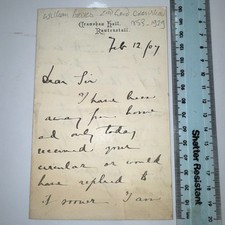 William 2nd Lord
1939
Crawshaw Hall,
Rawtenstall.
Feb 12/07
Dear Sir
I have been
away from home
and only today
received your
circular or would
have replied to
it sooner I am
Shatter Resistant